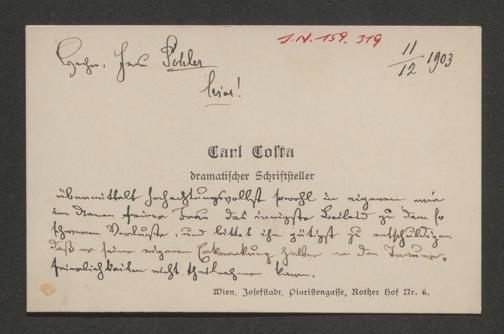 I.N. 159.319
11/12 1903
Geehr. Frau Pohler
hier!
Carl Costa
dramatischer Schriftsteller
übermittelt hochachtungsvollst sowohl in eigenem wie
im Namen seiner Frau das innigste Beileid zu dem so
schweren Verluste, und bittet ihn gütigst zu entschuldigen
daß er seiner eigenen Erkrankung halber an den Trauer-
feierlichkeiten nicht theilnehmen kann.
Wien, Josefstadt, Piaristengasse, Rother Hof Nr. 6.